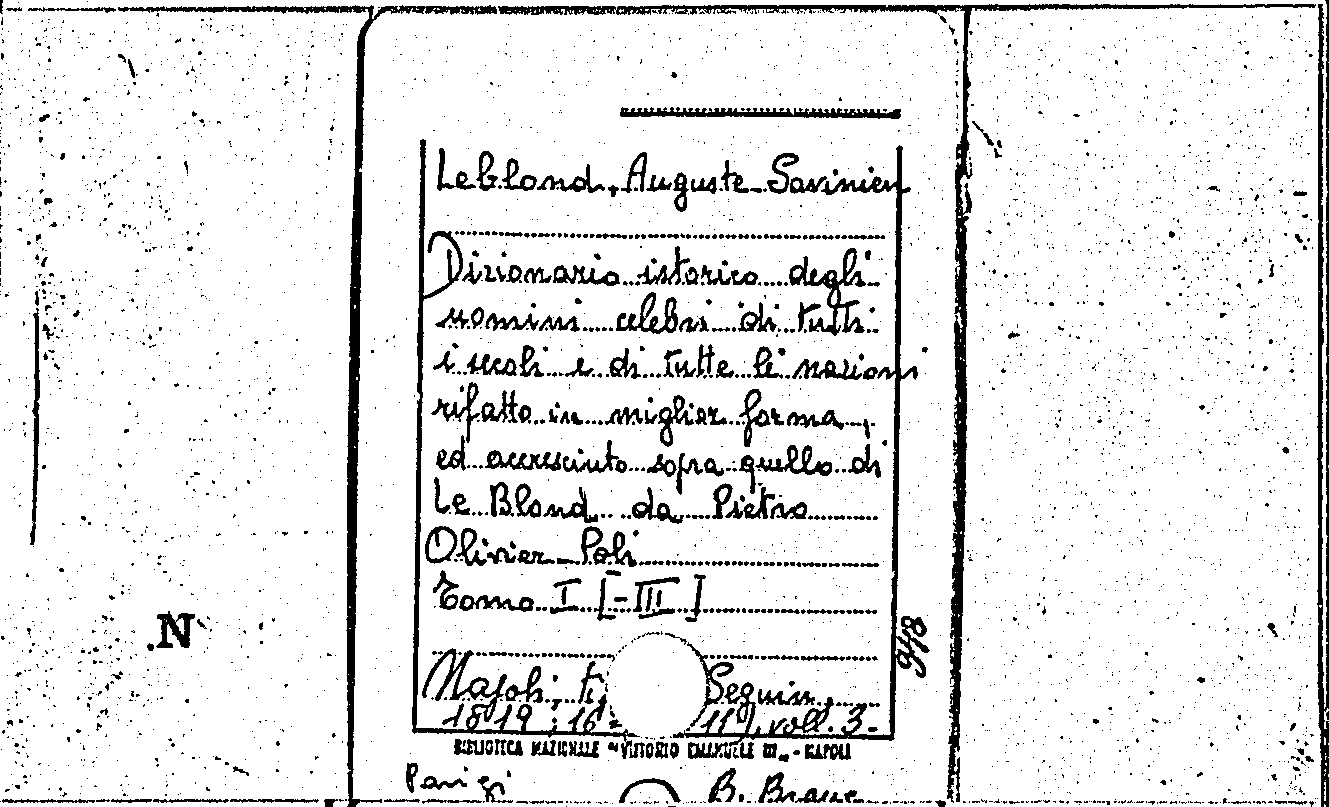 Leblond, Auguste Savinien
Dizionario istorico degli
uomini celebri di tutti
i secoli e di tutte le nazioni
rifatto in miglior forma,
ed accresciuto sopra quello di
Le Blond da Pietro
Olivier-Poli
Tomo I [-III]
.N
Napoli, ti Seguin,
1819; 16= voll. 3-
BIBLIOTECA NAZIONALE "VITTORIO EMANUELE III„ - NAPOLI
Parigi B.